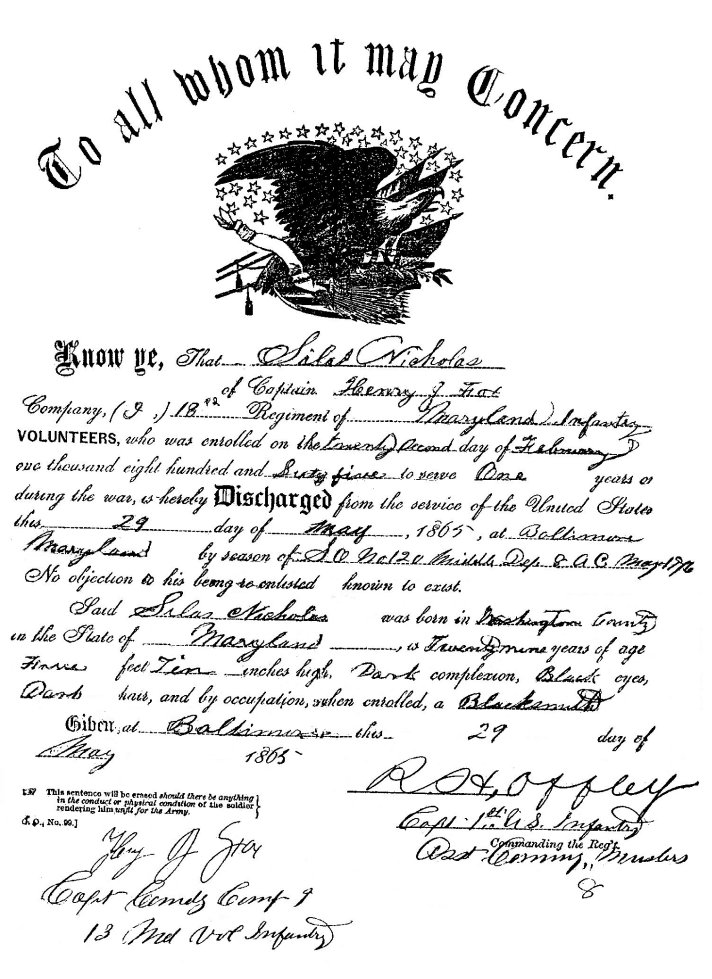 To all whom it may Concern.
Know ye, That Silas Nicholas
of Captain Henry J Fox
Company, (I,) 13 Regiment of Maryland Infantry
VOLUNTEERS, who was enrolled on the twenty second day of February
one thousand eight hundred and Sixty five to serve One years or
during the war, is hereby Discharged from the service of the United States
this 29 day of May, 1865, at Baltimore
Maryland by reason of S.O No 120 Middle Dep 8 A C May
No objection to his being re-enlisted known to exist.
Said Silas Nicholas was born in Washington County
in the State of Maryland, is Twenty nine years of age
Five feet Ten inches high, Dark complexion, Black eyes,
Dark hair, and by occupation, when enrolled, a Blacksmith
Given at Baltimore this 29 day of
May 1865
This sentence will be erased should there be anything
in the conduct or physical condition of the soldier
rendering him unfit for the Army.
No. 99.]
R H, Offley
Capt 1st U.S. Infantry
Commanding the Reg't.
Asst Commy, Musters
8
Henry J Fox
Capt Comdg Comp I
13 Md Vol Infantry